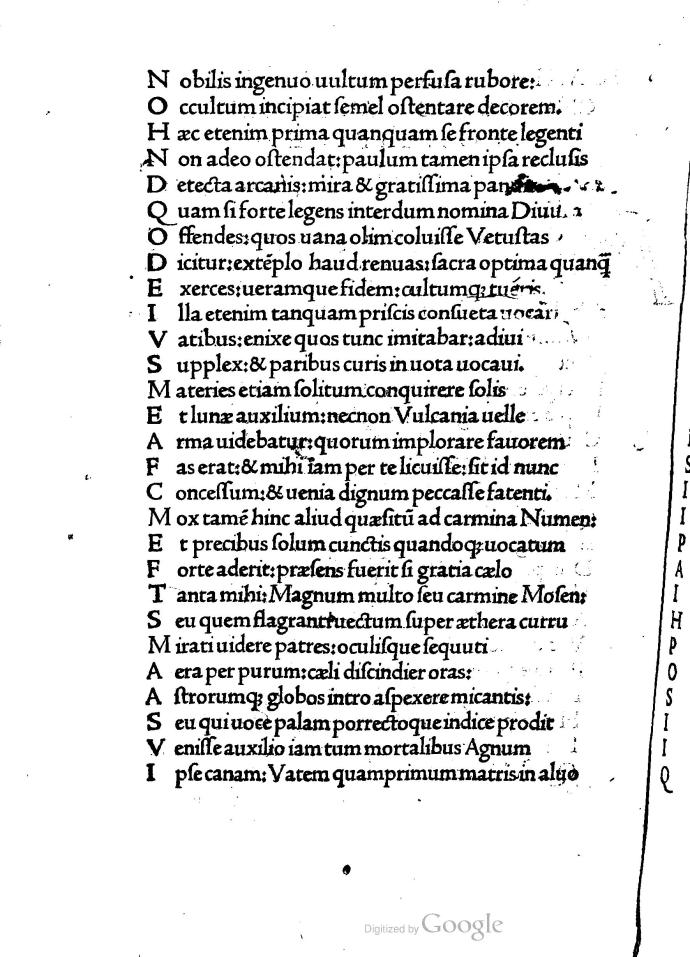 N obilis ingenuo uultum perfusa rubore:
O ccultum incipiat semel ostentare decorem.
H æc etenim prima quanquam se fronte legenti
N on adeo ostendat: paulum tamen ipsa reclusis
D etecta arcanis: mira & gratissima
Q uam si forte legens interdum nomina
O ffendes: quos uana olim coluisse Vetustas
D icitur: extẽplo haud renuas: sacra optima quanq̃
E xerces: ueramque fidem: cultumqꝫ tueris.
I lla etenim tanquam priscis consueta
V atibus: enixe quos tunc imitabar: adiui
S upplex: & paribus curis in uota uocaui.
M ateries etiam solitum conquirere solis
E t lunæ auxilium: necnon Vulcania uelle
A rma uidebatur: quorum implorare fauorem
F as erat: & mihi iam per te licuisse: sit id nunc
C oncessum: & uenia dignum peccasse fatenti.
M ox tamẽ hinc aliud quæsitũ ad carmina Numen:
E t precibus solum cunctis quandoqꝫ uocatum
F orte aderit: præsens fuerit si gratia cælo
T anta mihi: Magnum multo seu carmine Mosen:
S eu quem flagranti uectum super æthera curru
M irati uidere patres: oculisque sequuti
A era per purum: cæli discindier oras:
A strorumqꝫ globos intro aspexere micantis:
S eu qui uoce palam porrectoque indice prodit
V enisse auxilio iam tum mortalibus Agnum
I pse canam: Vatem quamprimum matris in aluo
I
S
I
I
P
A
I
H
P
O
S
I
I
Q
Digitized by Google